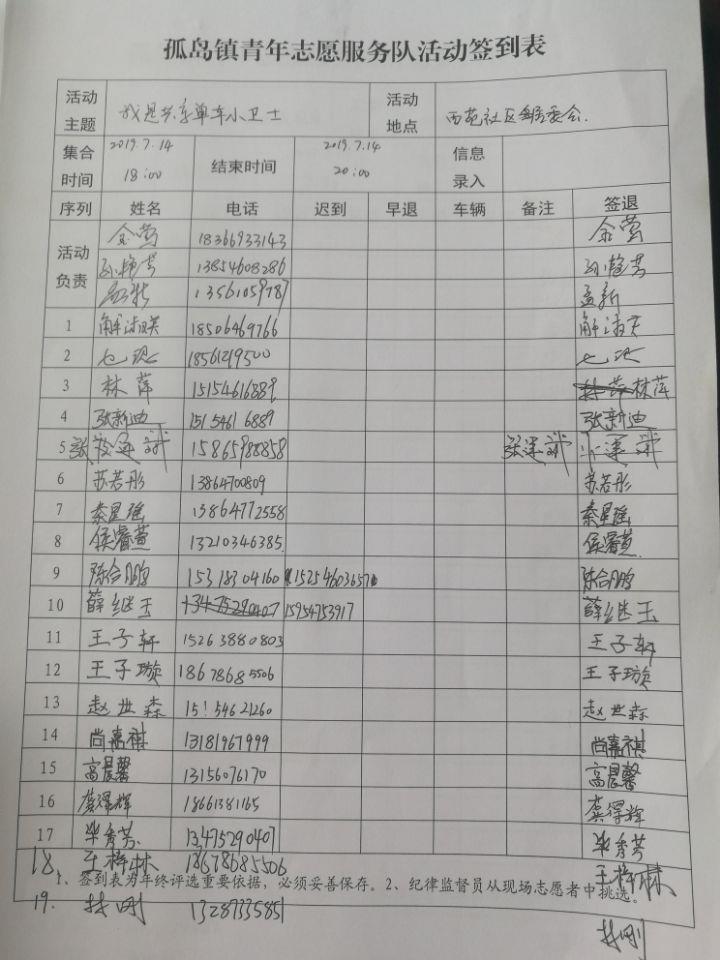 孤岛镇青年志愿服务队活动签到表
活动主题 我是共享单车小卫士 活动地点 西苑社区居委会.
集合时间 2019.7.14 18:00 结束时间 2019.7.14 20:00 信息录入
序列 姓名 电话 迟到 早退 车辆 备注 签退
活动负责 金莹 18366933143 金莹
孙艳芳 13854608286 孙艳芳
孟新 13561059787 孟新
1 解淑英 18506469766 解淑英
2 18561219500
3 林萍 15154616889 林萍
4 张新迪 15154616889 张新迪
5 张 15865988858
6 苏若彤 13864700809 苏若彤
7 秦星瑶 13864772558 秦星瑶
8 侯睿萱 13210346385. 侯睿萱
9 陈合鹏 15318304160 15254603657 陈合鹏
10 薛继玉 13475290407 15954753917 薛继玉
11 王子轩 15263880803 王子轩
12 王子璇 18678685506 王子璇
13 赵世森 15154621260 赵世森
14 尚嘉祺 13181967999 尚嘉祺
15 高晨馨 13156076170 高晨馨
16 龚得辉 18661381165 龚得辉
17 毕秀芳 13475290407 毕秀芳
18. 王梓林 18678685506 王梓林
1、签到表为年终评选重要依据，必须妥善保存。2、纪律监督员从现场志愿者中挑选。
19. 林刚 13287335851 林刚